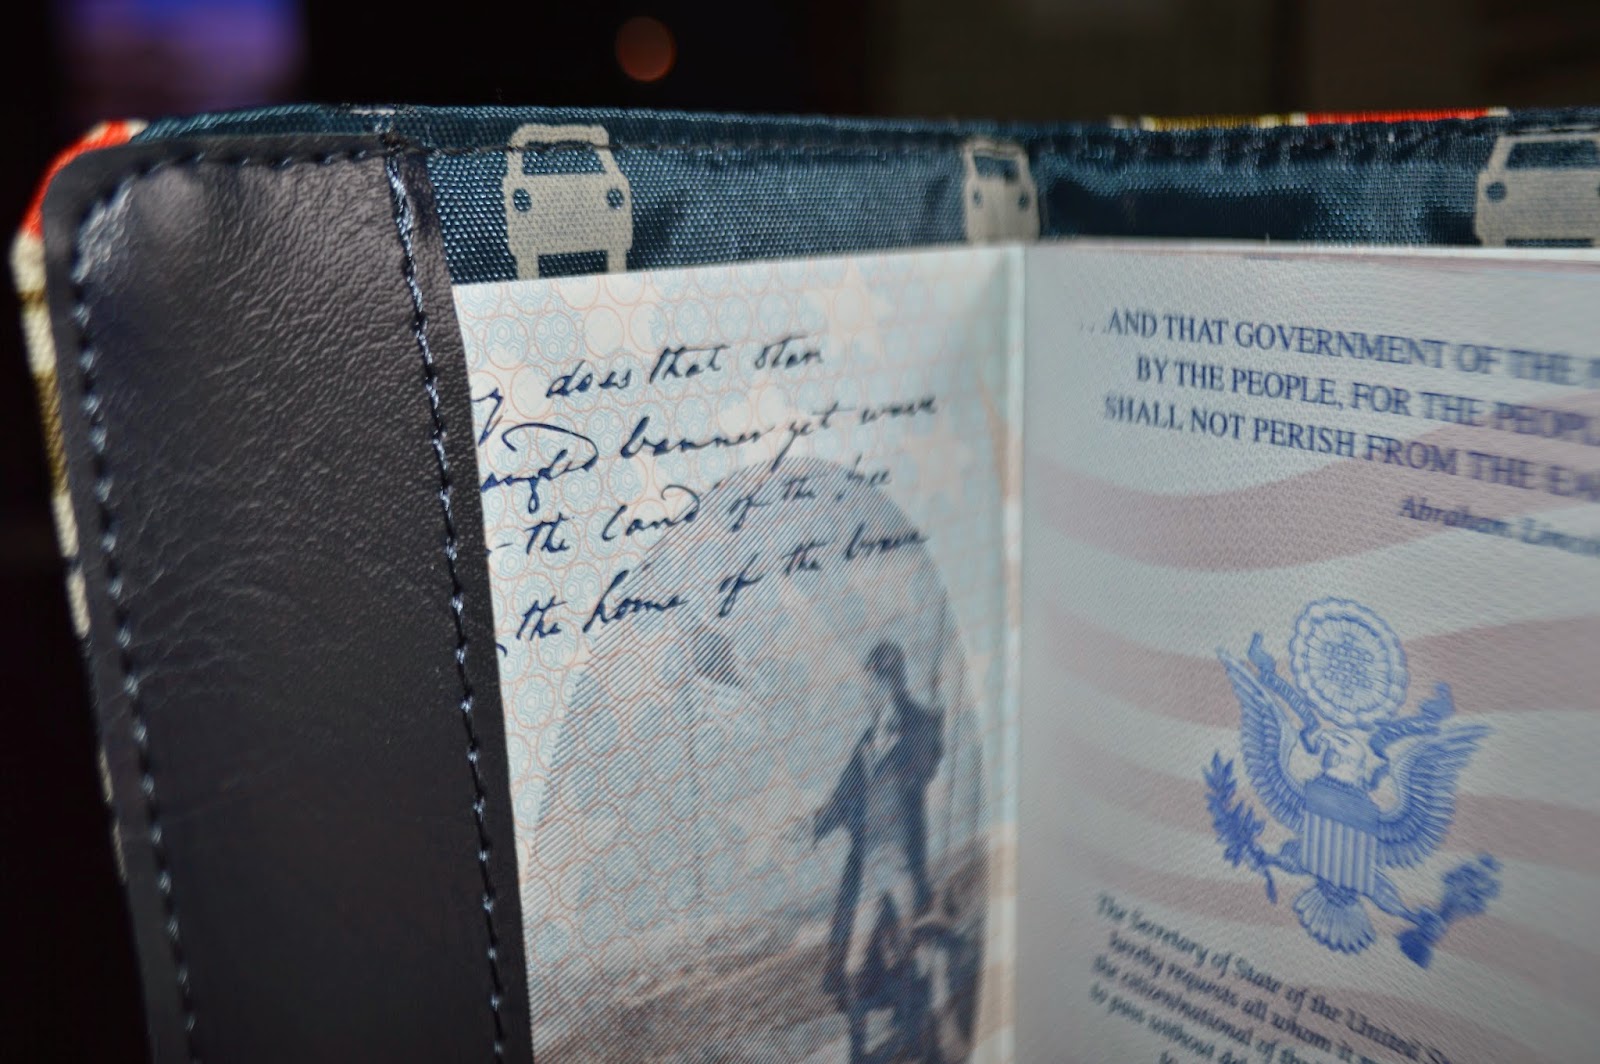 does that star
banner yet wave
the land of the free
the home of the brave
...AND THAT GOVERNMENT OF THE
BY THE PEOPLE, FOR THE PEOPL
SHALL NOT PERISH FROM THE EA
Abraham Linco
The Secretary of State of the United
hereby requests all whom it
the citizen/national of the
to pass without del